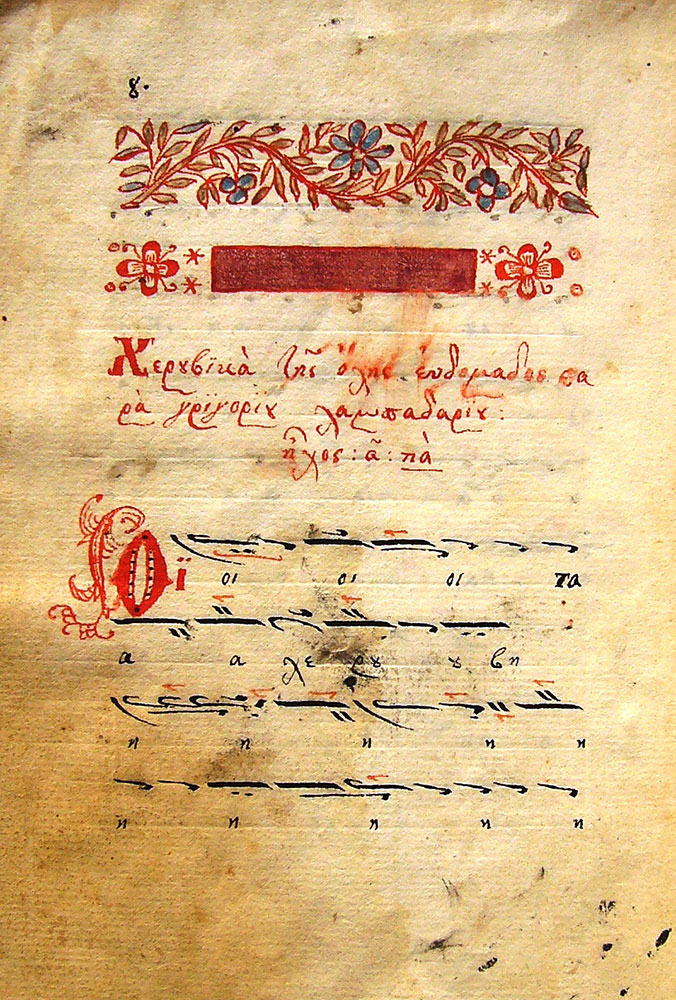 8.
Χερουβϊκὰ τῆς ὅλης ἑυδομαδος πα
ρὰ γριγορίου λαμπαδαρίου:
ἦχος: α: πὰ
Οϊ οι οι οι τα
α α χε ρου ου βη
η η η η η
η η η η η